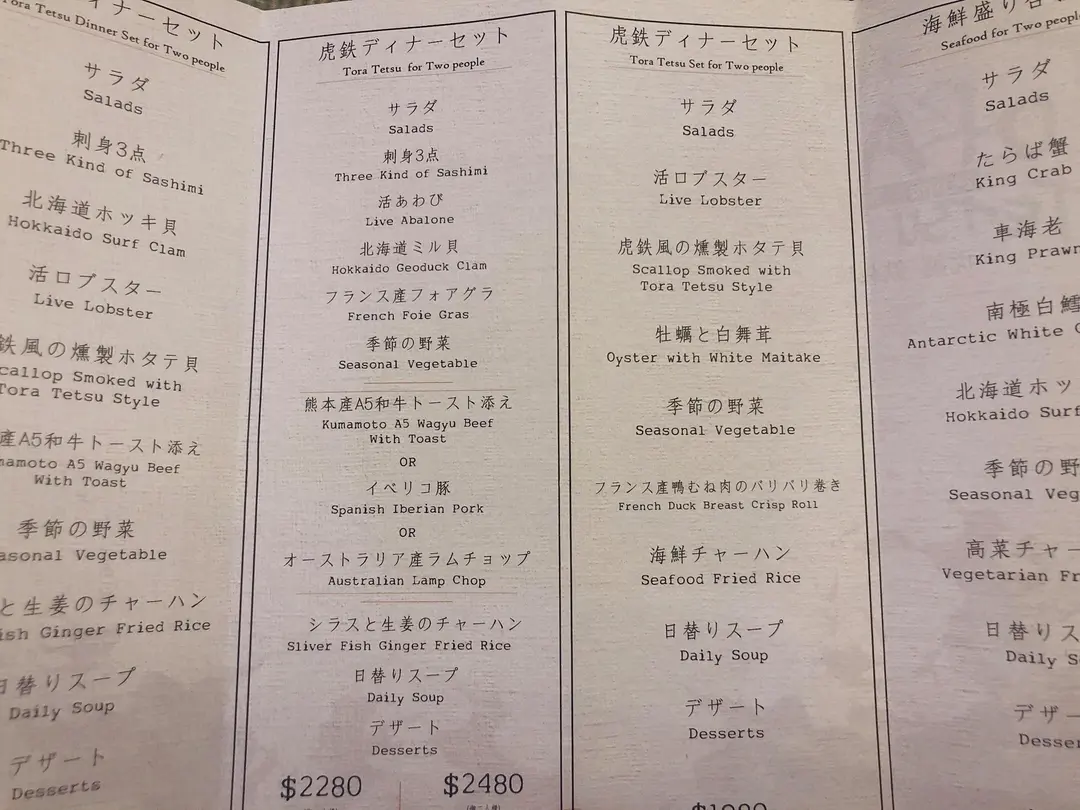 ィナーセット
Tora Tetsu Dinner Set for Two people
サラダ
Salads
刺身3点
Three Kind of Sashimi
北海道ホッキ貝
Hokkaido Surf Clam
活ロブスター
Live Lobster
鉄風の燻製ホタテ貝
callop Smoked with
Tora Tetsu Style
産A5和牛トースト添え
mamoto A5 Wagyu Beef
With Toast
季節の野菜
asonal Vegetable
と生姜のチャーハン
ish Ginger Fried Rice
日替りスープ
Daily Soup
デザート
Desserts
虎鉄ディナーセット
Tora Tetsu for Two people
サラダ
Salads
刺身3点
Three Kind of Sashimi
活あわび
Live Abalone
北海道ミル貝
Hokkaido Geoduck Clam
フランス産フォアグラ
French Foie Gras
季節の野菜
Seasonal Vegetable
熊本産A5和牛トースト添え
Kumamoto A5 Wagyu Beef
With Toast
OR
イベリコ豚
Spanish Iberian Pork
OR
オーストラリア産ラムチョップ
Australian Lamp Chop
シラスと生姜のチャーハン
Sliver Fish Ginger Fried Rice
日替りスープ
Daily Soup
デザート
Desserts
$2280 $2480
虎鉄ディナーセット
Tora Tetsu Set for Two people
サラダ
Salads
活ロブスター
Live Lobster
虎鉄風の燻製ホタテ貝
Scallop Smoked with
Tora Tetsu Style
牡蠣と白舞茸
Oyster with White Maitake
季節の野菜
Seasonal Vegetable
フランス産鴨むね肉のパリパリ巻き
French Duck Breast Crisp Roll
海鮮チャーハン
Seafood Fried Rice
日替りスープ
Daily Soup
デザート
Desserts
海鮮盛り合
Seafood for Two people
サラダ
Salads
たらば蟹
King Crab
車海老
King Prawn
南極白鱈
Antarctic White
北海道ホッ
Hokkaido Surf
季節の野
Seasonal Veg
高菜チャー
Vegetarian Fr
日替りス
Daily S
デザー
Desser